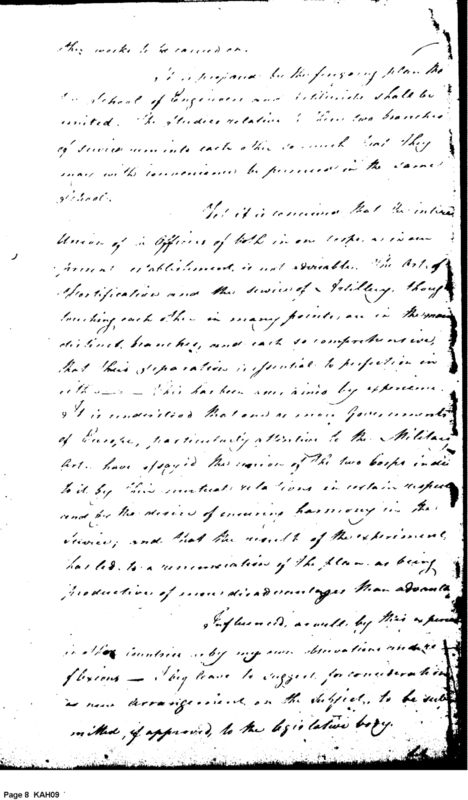 the works to be carried on.
It is proposed by the foregoing plan that
the School of Engineers and Artillerists shall be
united. The Studies relative to these two branches
of service run into each other so much that they
may with convenience be pursued in the same
School.
Yet it is conceived that the intire
Union of the Officers of both in one Corps, as in our
present establishment, is not adviseable. The Art of
Fortification and the service of Artillery, though
touching each other in many points, are in the main
distinct branches, and each so comprehensive,
that their separation is essential to perfection in
either — This has been ascertained by experience.
It is understood that one or more Governments
of Europe, particularly attentive to the Military
Art, have essayed the union of the two Corps, induced
to it by their mutual relations in certain respects
and by the desire of ensuring harmony in the
Service; and that the result of the experiment
has led to a renunciation of the plan, as being
productive of more disadvantages than advantages
Influenced as well by this experience
in other countries as by my own observations and re
flexions — I beg leave to suggest for consideration
a new arrangement on the subject, to be sub
mitted, if approved, to the legislative body.
Page 8 KAH09